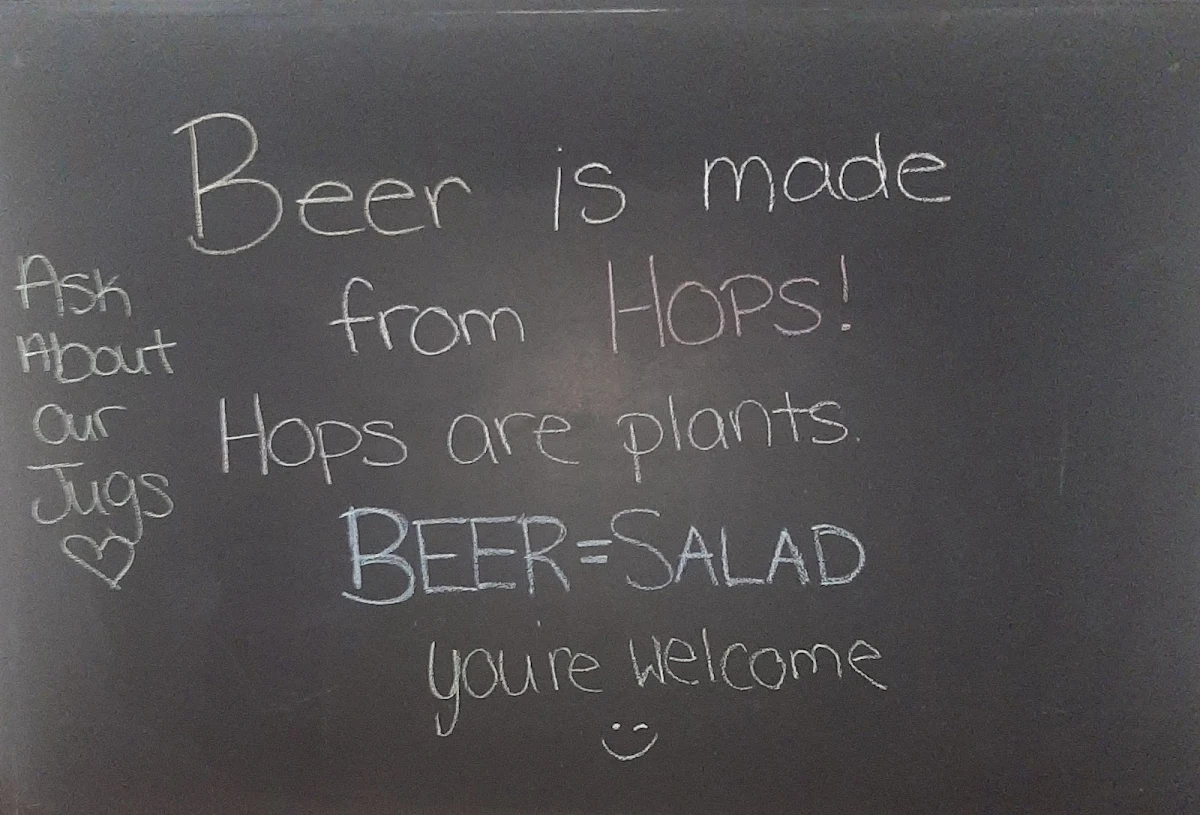 Beer is made
from HOPS!
Hops are plants.
BEER=SALAD
you're welcome
Ask
About
our
Jugs